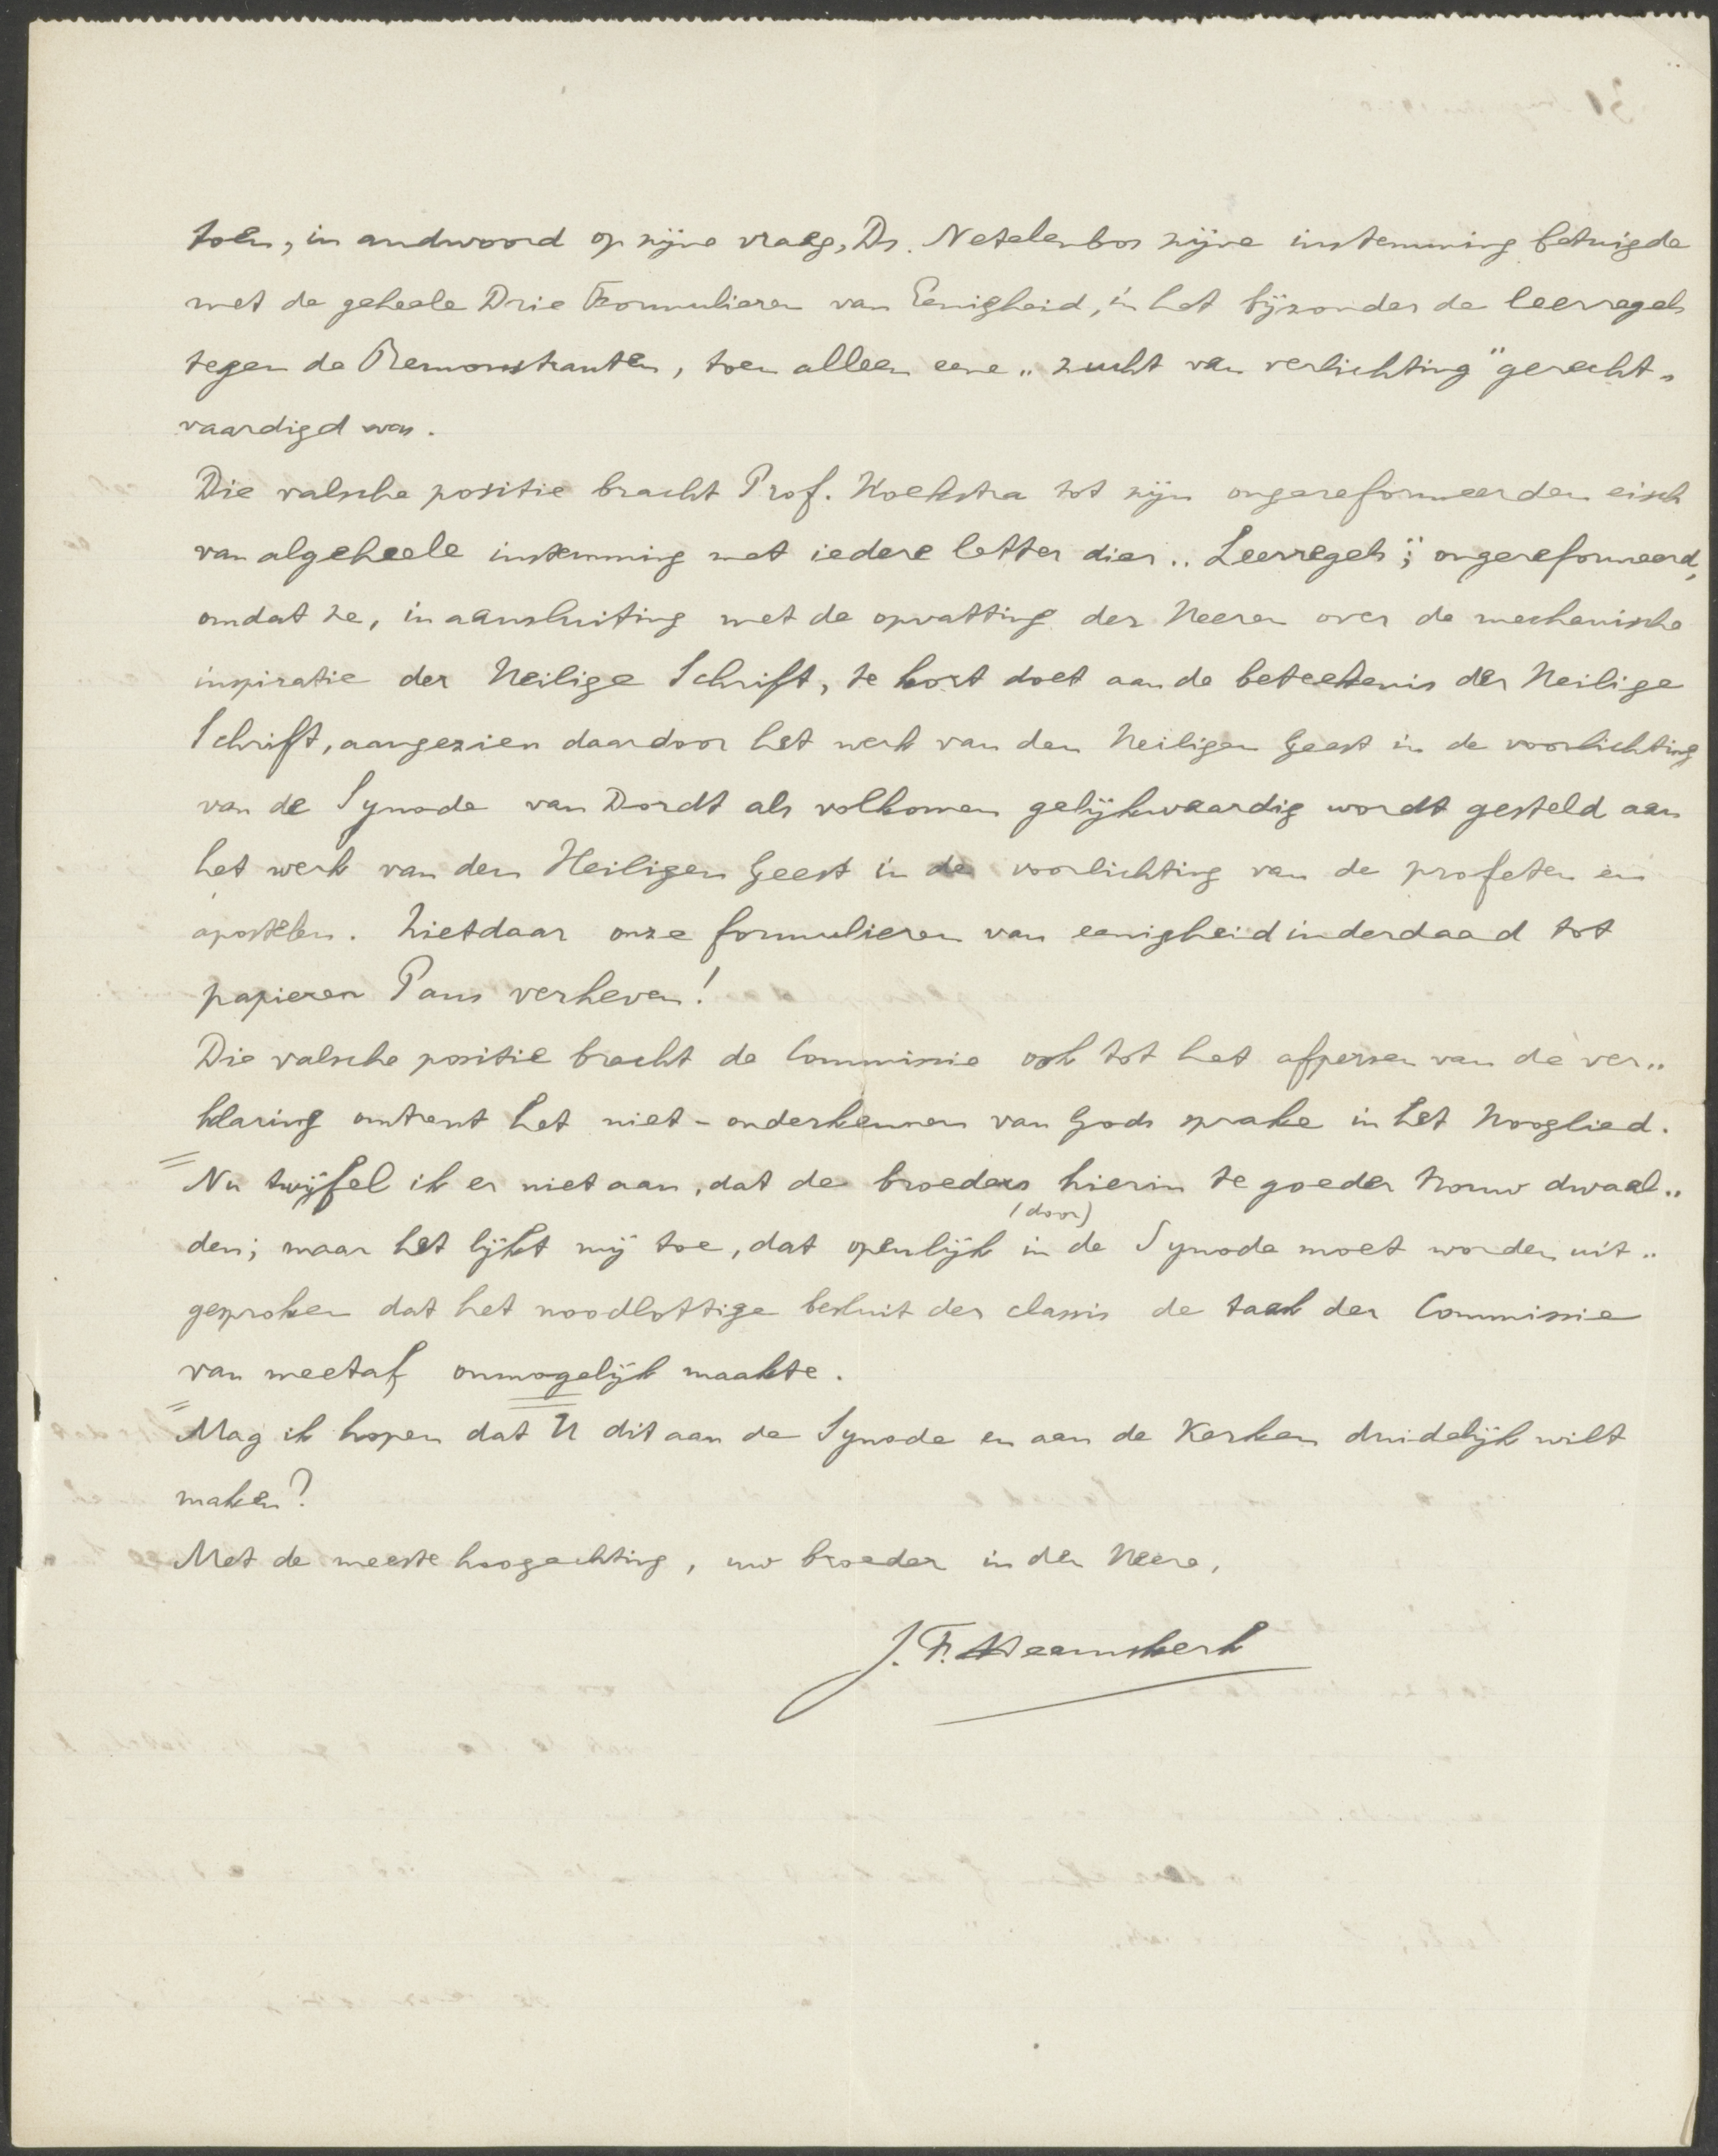 toen, in andwoord op zijne vraag, Ds. Netelenbos zijne instemming betuigde
met de geheele Drie Formulieren van Eenigheid, in het bijzonder de leerregels
tegen de Remonstranten, toen alleen eene „zucht van verlichting" gerecht„
vaardigd was.
Die valsche positie bracht Prof. Hoekstra tot zijn ongereformeerden eisch
van algeheele instemming met iedere letter dier „Leerregels"; ongereformeerd,
omdat ze, in aansluiting met de opvatting der Heeren over de mechanische
inspiratie der Heilige Schrift, te kort doet aan de beteekenis der Heilige
Schrift, aangezien daardoor het werk van den Heiligen Geest in de voorlichting
van de Synode van Dordt als volkomen gelijkwaardig wordt gesteld aan
het werk van den Heiligen Geest in de voorlichting van de profeten en
apostelen. Zietdaar onze formulieren van eenigheid inderdaad tot
papieren Paus verheven!
Die valsche positie bracht de Commissie ook tot het afpersen van de ver„
klaring omtrent het niet-onderkennen van Gods sprake in het Hooglied.
Nu twijfel ik er niet aan, dat de broeders hierin te goeder trouw dwaal„
(door)
den; maar het lijkt mij toe, dat openlijk in de Synode moet worden uit„
gesproken dat het noodlottige besluit der classis de taak der Commissie
van meetaf onmogelijk maakte.
Mag ik hopen dat U dit aan de Synode en aan de Kerken duidelijk wilt
maken?
Met de meeste hoogachting, uw broeder in den Heere,
J. F. Heemskerk